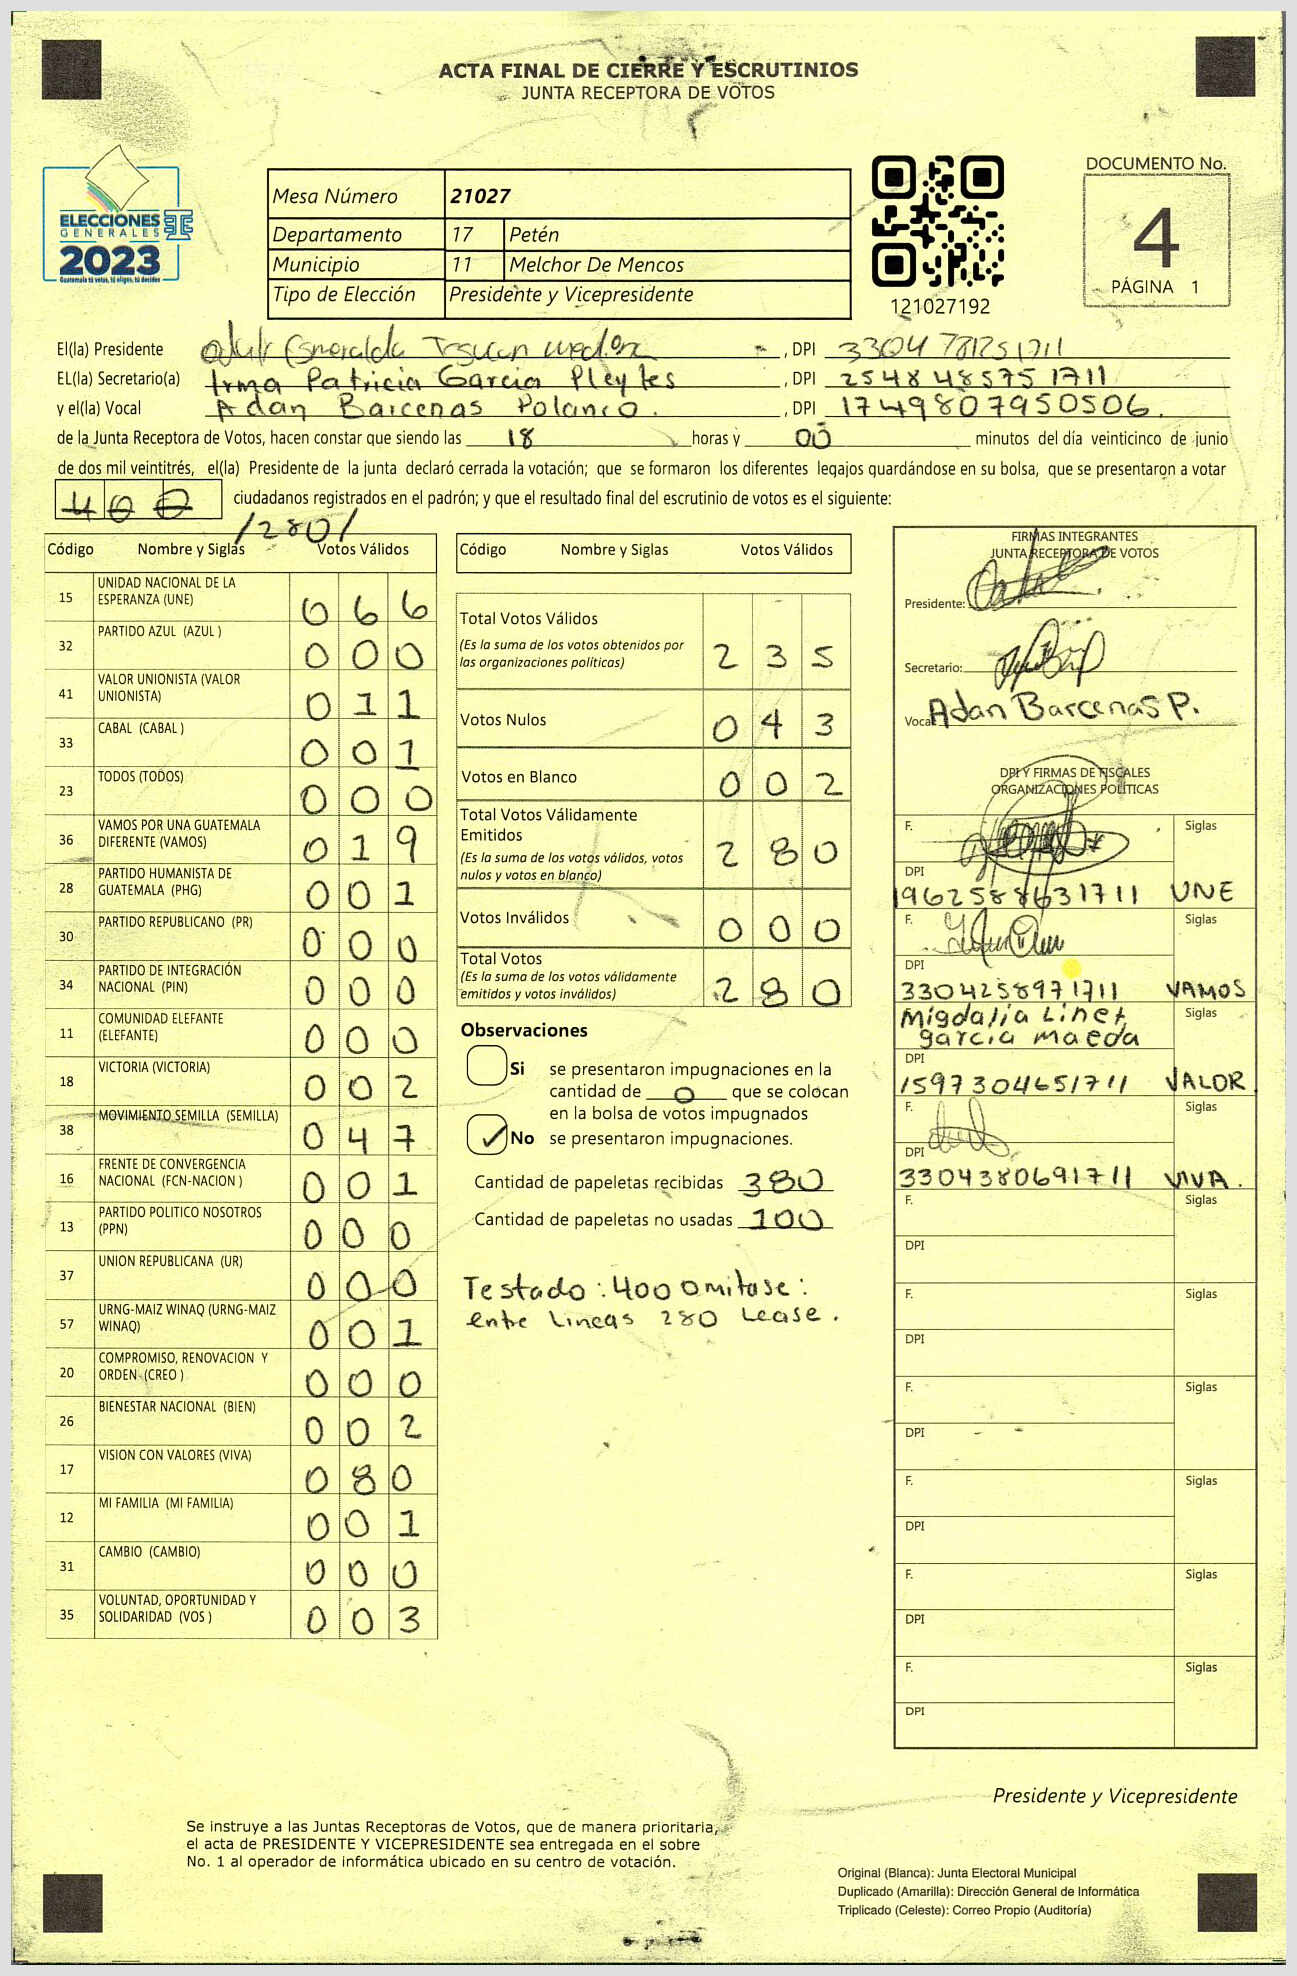 ACTA FINAL DE CIERRE Y ESCRUTINIOS
JUNTA RECEPTORA DE VOTOS
ELECCIONES
GENERALES
2023
Guatemala tú votas, tú eliges, tú decides
Mesa Número 21027
Departamento 17 Petén
Municipio 11 Melchor De Mencos
Tipo de Elección Presidente y Vicepresidente
121027192
DOCUMENTO No.
4
PÁGINA 1
El(la) Presidente Esmeralda , DPI 3304 781251711
EL(la) Secretario(a) Irma Patricia Garcia Pleytes , DPI 2548485751711
y el(la) Vocal Adan Barcenas Polanco. , DPI 1749807950506.
de la Junta Receptora de Votos, hacen constar que siendo las 18 horas y 00 minutos del día veinticinco de junio
de dos mil veintitrés, el(la) Presidente de la junta declaró cerrada la votación; que se formaron los diferentes legajos guardándose en su bolsa, que se presentaron a votar
400 ciudadanos registrados en el padrón; y que el resultado final del escrutinio de votos es el siguiente:
/280/
Código Nombre y Siglas Votos Válidos
15 UNIDAD NACIONAL DE LA
ESPERANZA (UNE) 066
32 PARTIDO AZUL (AZUL ) 000
41 VALOR UNIONISTA (VALOR
UNIONISTA) 011
33 CABAL (CABAL ) 001
23 TODOS (TODOS) 000
36 VAMOS POR UNA GUATEMALA
DIFERENTE (VAMOS) 019
28 PARTIDO HUMANISTA DE
GUATEMALA (PHG) 001
30 PARTIDO REPUBLICANO (PR) 000
34 PARTIDO DE INTEGRACIÓN
NACIONAL (PIN) 000
11 COMUNIDAD ELEFANTE
(ELEFANTE) 000
18 VICTORIA (VICTORIA) 002
38 MOVIMIENTO SEMILLA (SEMILLA) 047
16 FRENTE DE CONVERGENCIA
NACIONAL (FCN-NACION ) 001
13 PARTIDO POLITICO NOSOTROS
(PPN) 000
37 UNION REPUBLICANA (UR) 000
57 URNG-MAIZ WINAQ (URNG-MAIZ
WINAQ) 001
20 COMPROMISO, RENOVACION Y
ORDEN (CREO ) 000
26 BIENESTAR NACIONAL (BIEN) 002
17 VISION CON VALORES (VIVA) 080
12 MI FAMILIA (MI FAMILIA) 001
31 CAMBIO (CAMBIO) 000
35 VOLUNTAD, OPORTUNIDAD Y
SOLIDARIDAD (VOS ) 003
Código Nombre y Siglas Votos Válidos
Total Votos Válidos
(Es la suma de los votos obtenidos por
las organizaciones políticas) 235
Votos Nulos 043
Votos en Blanco 002
Total Votos Válidamente
Emitidos
(Es la suma de los votos válidos, votos
nulos y votos en blanco) 280
Votos Inválidos 000
Total Votos
(Es la suma de los votos válidamente
emitidos y votos inválidos) 280
Observaciones
Si se presentaron impugnaciones en la
cantidad de 0 que se colocan
en la bolsa de votos impugnados
✓ No se presentaron impugnaciones.
Cantidad de papeletas recibidas 380
Cantidad de papeletas no usadas 100
Testado : 400 omitase :
entre lineas 280 Lease .
FIRMAS INTEGRANTES
JUNTA RECEPTORA DE VOTOS
Presidente:
Secretario:
Vocal Adan Barcenas P.
DPI Y FIRMAS DE FISCALES
ORGANIZACIONES POLÍTICAS
F. Siglas
DPI
1962588631711 UNE
F. Siglas
DPI
3304258971711 VAMOS
Migdalia Linet Siglas
garcia maeda
DPI
1597304651711 VALOR
F. Siglas
DPI
3304380691711 VIVA.
F. Siglas
DPI
F. Siglas
DPI
F. Siglas
DPI
F. Siglas
DPI
F. Siglas
DPI
F. Siglas
DPI
Presidente y Vicepresidente
Se instruye a las Juntas Receptoras de Votos, que de manera prioritaria,
el acta de PRESIDENTE Y VICEPRESIDENTE sea entregada en el sobre
No. 1 al operador de informática ubicado en su centro de votación.
Original (Blanca): Junta Electoral Municipal
Duplicado (Amarilla): Dirección General de Informática
Triplicado (Celeste): Correo Propio (Auditoría)